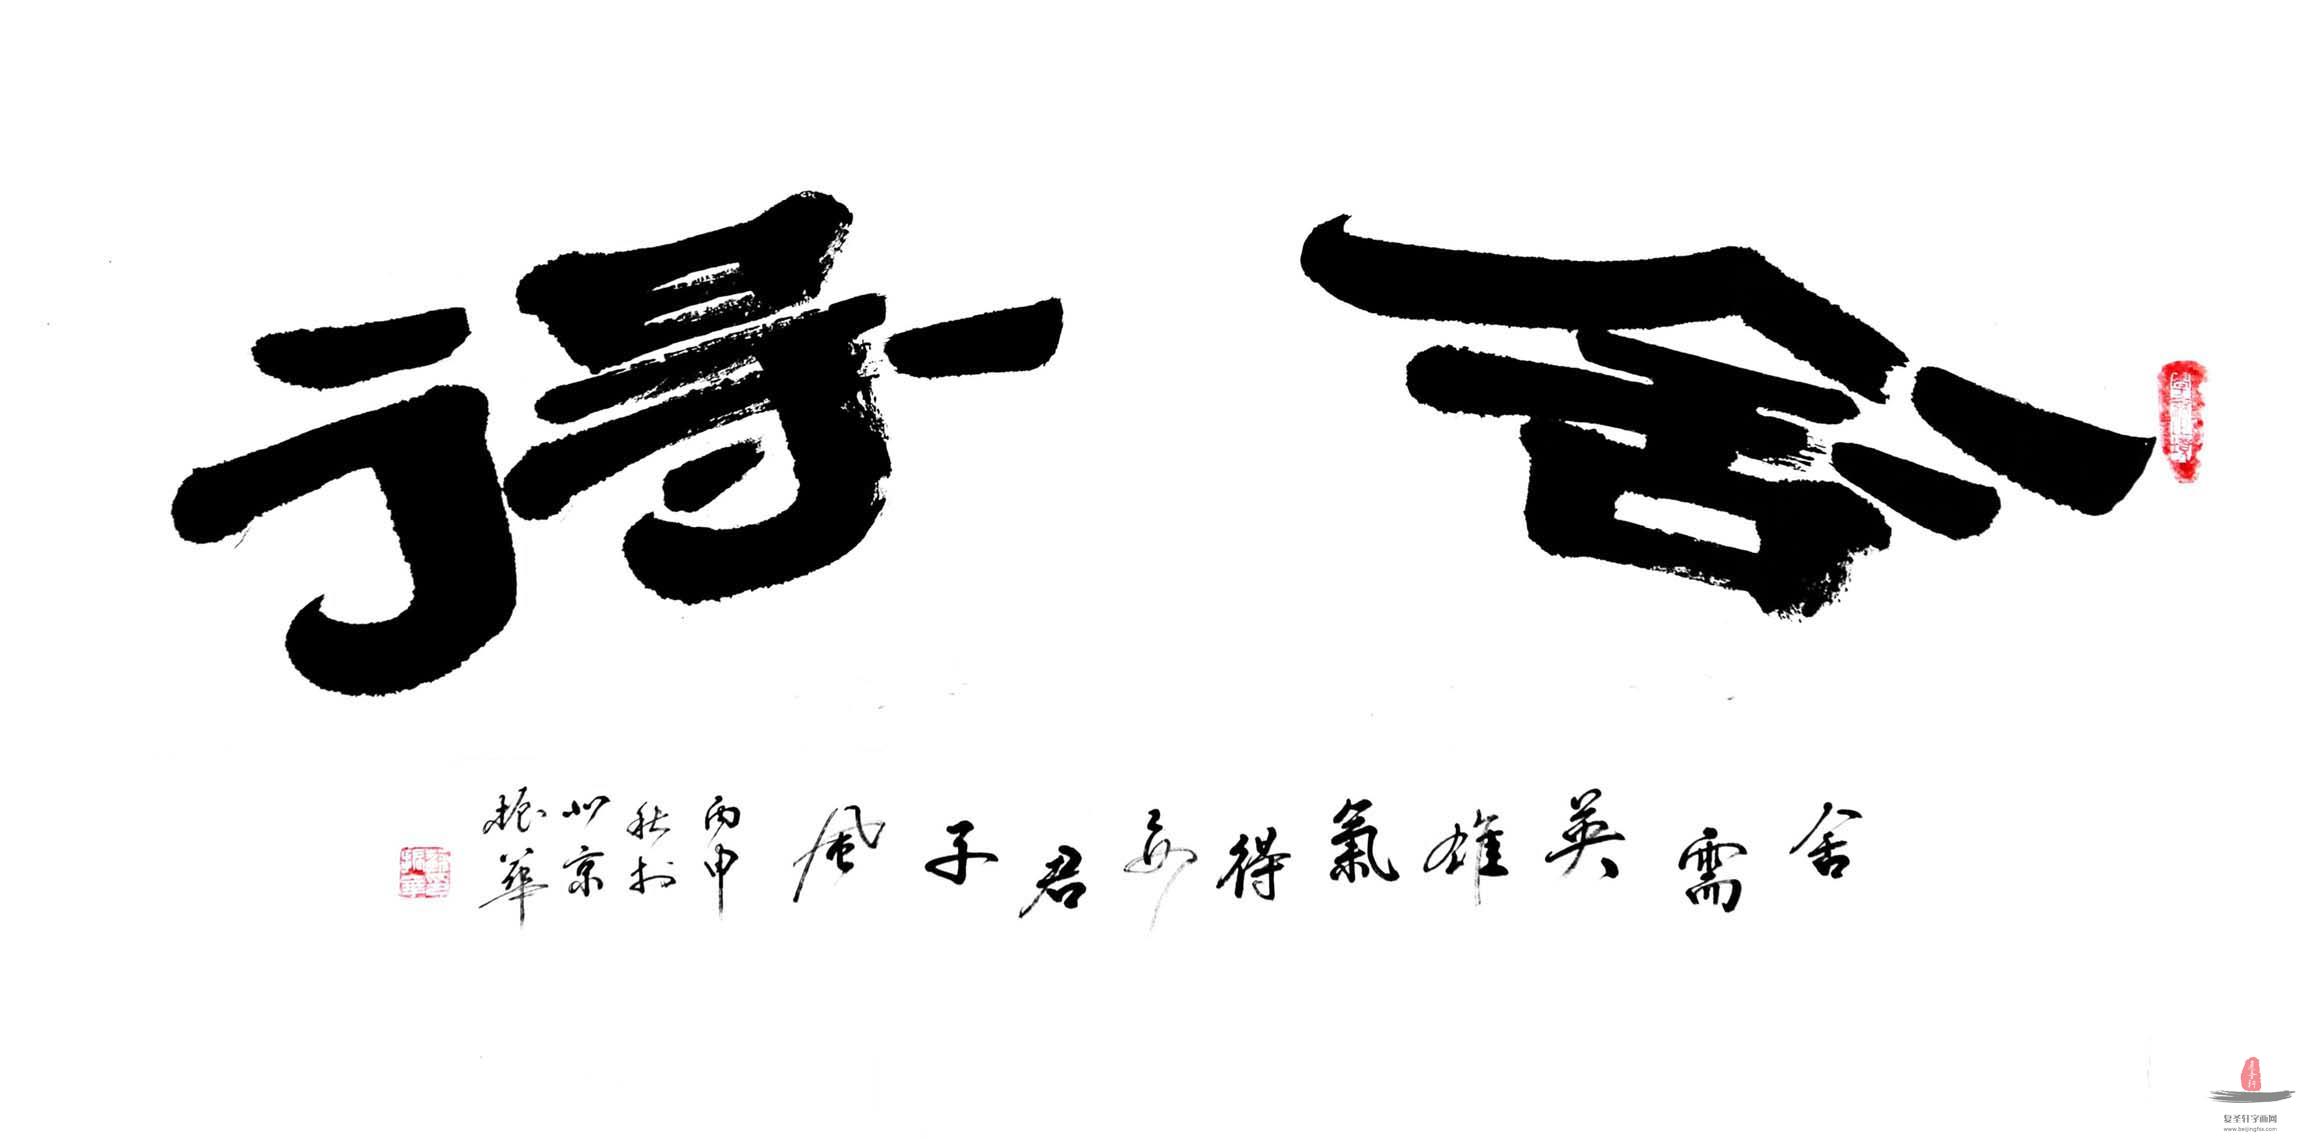 舍得
舍需英雄氣得要君子風
丙申
秋於
北京
振華
复圣轩字画网
www.beijingfsx.com